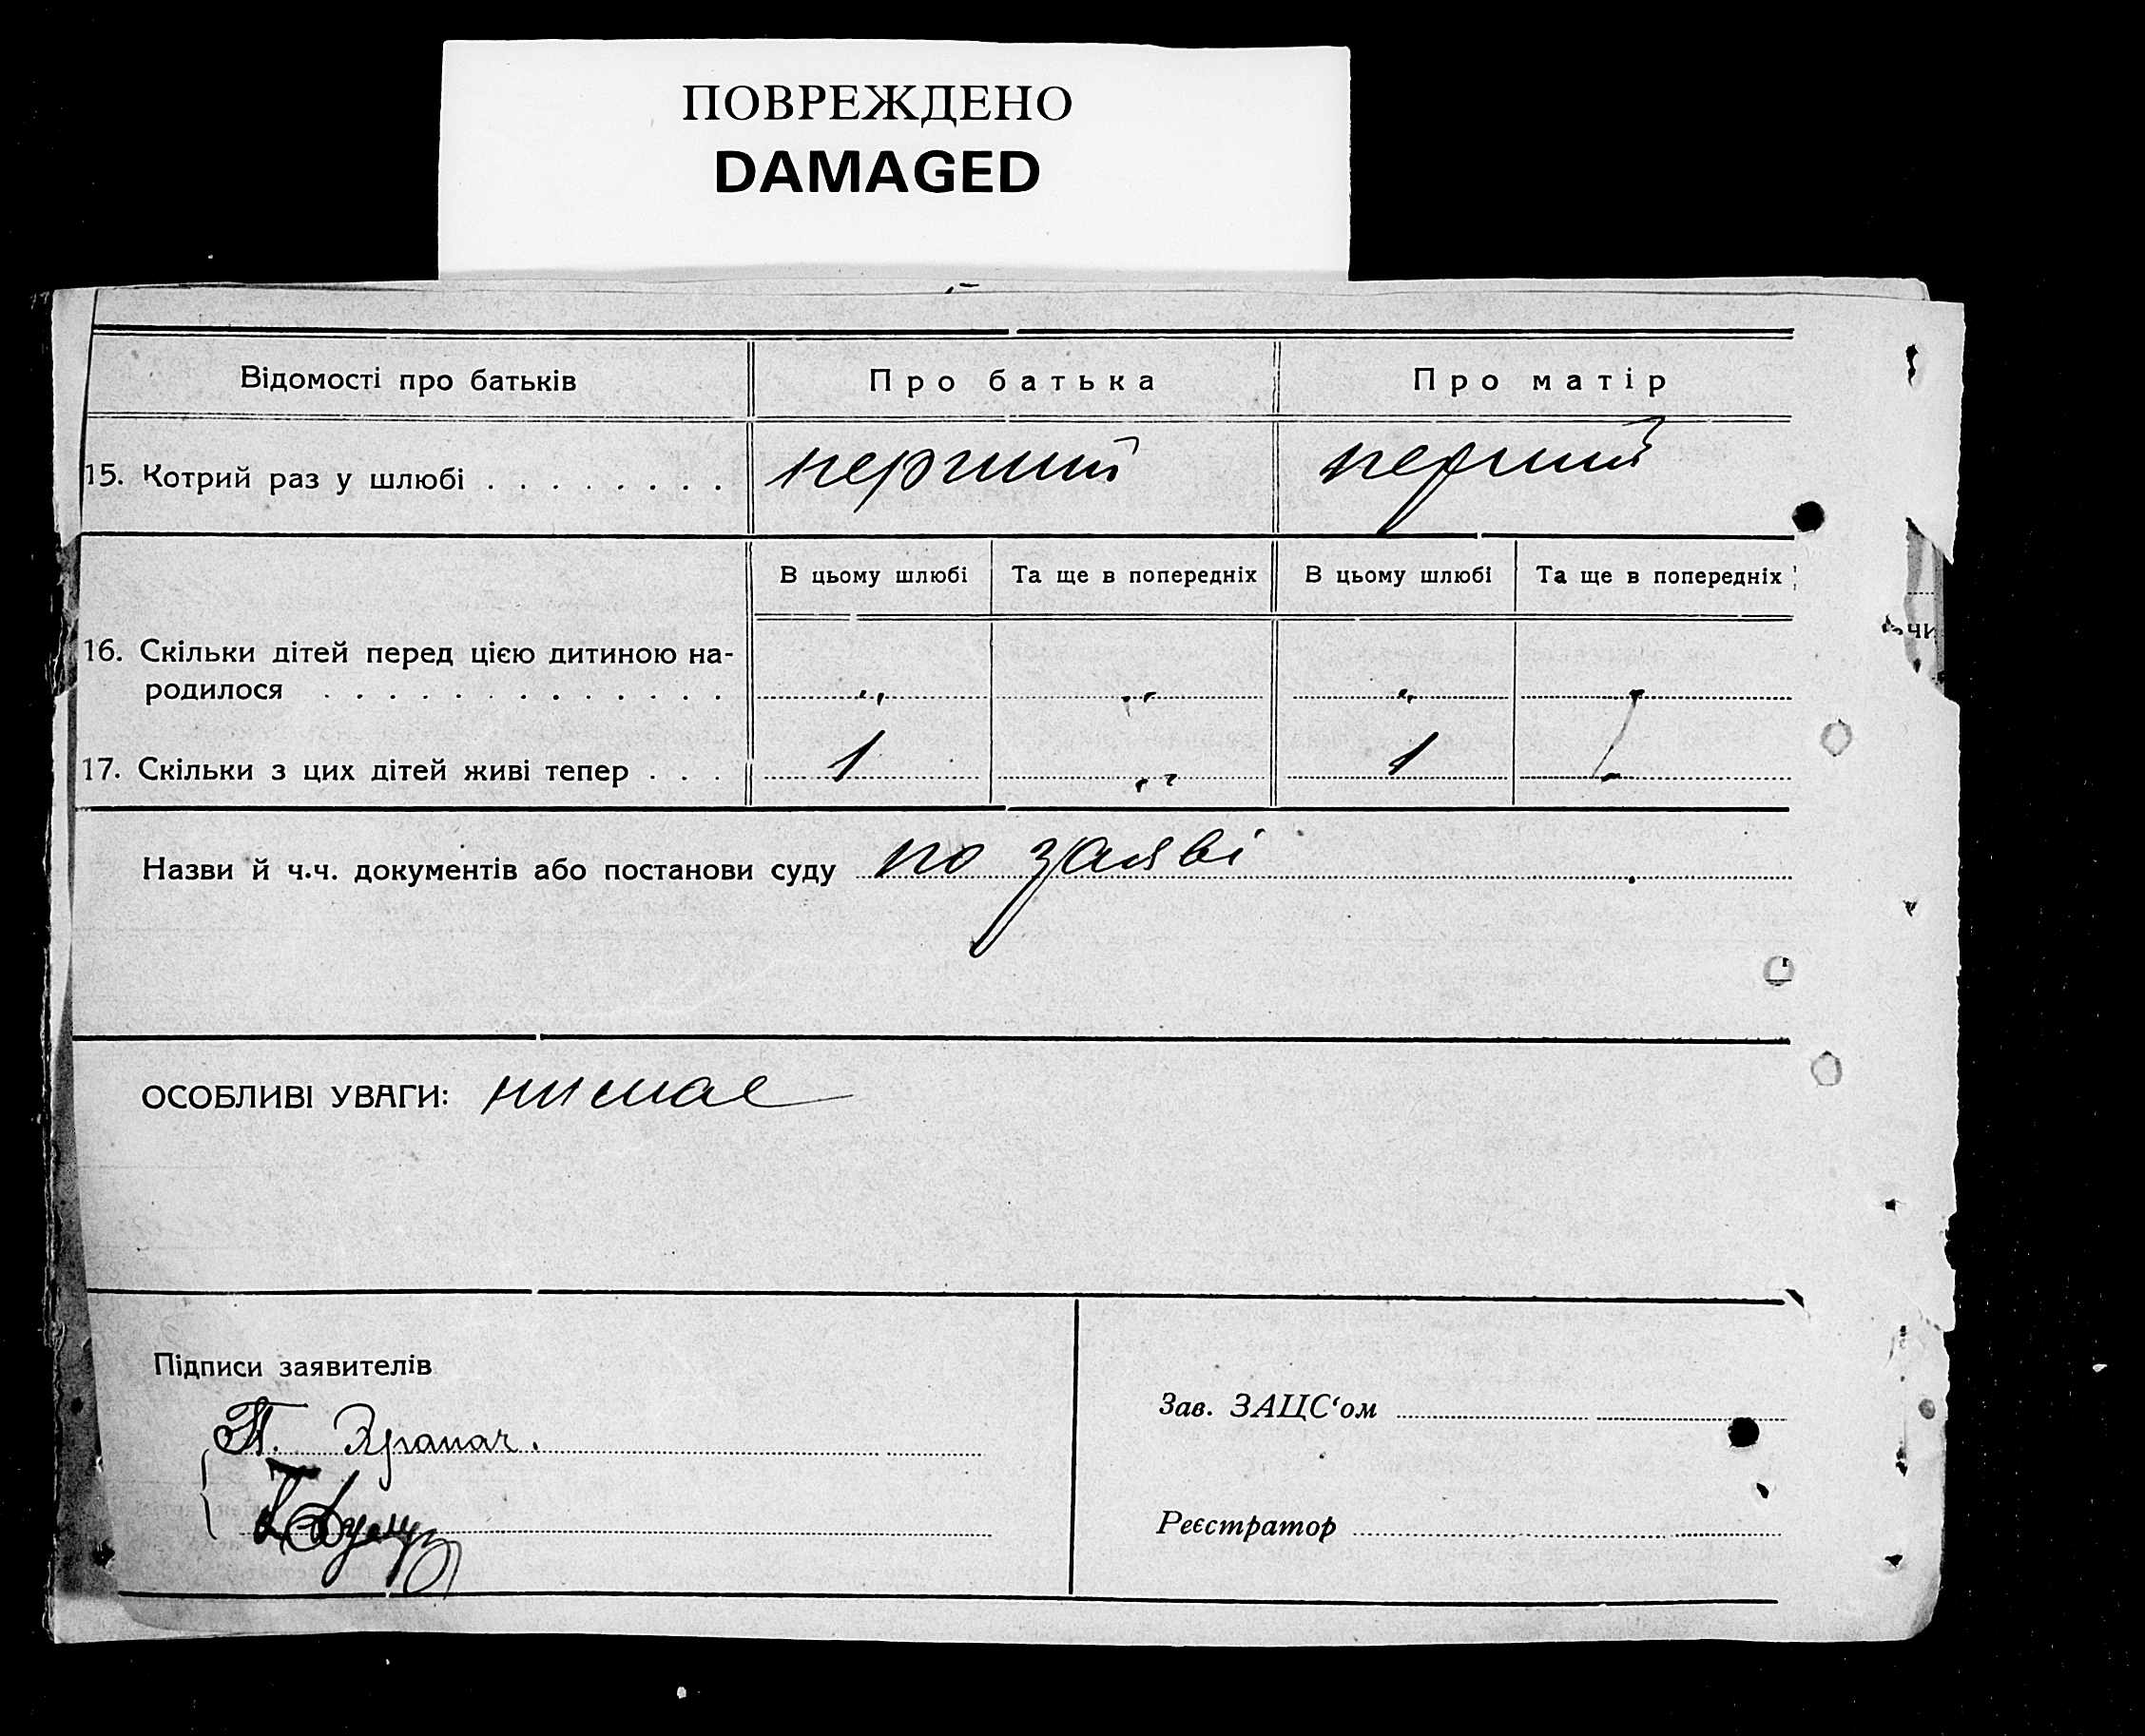 ПОВРЕЖДЕНО
DAMAGED
Відомості про батьків Про батька Про матір
15. Котрий раз у шлюбі . . . . . . . . перший перший
В цьому шлюбі Та ще в попередніх В цьому шлюбі Та ще в попередніх
16. Скільки дітей перед цією дитиною на-
родилося . . . . . . . . . . . . . „ „ „ „
17. Скільки з цих дітей живі тепер . . . 1 „ 1
Назви й ч.ч. документів або постанови суду по заяві
ОСОБЛИВІ УВАГИ: нимае
Підписи заявителів
П.
Зав. ЗАЦС‘ом
Реєстратор
чи